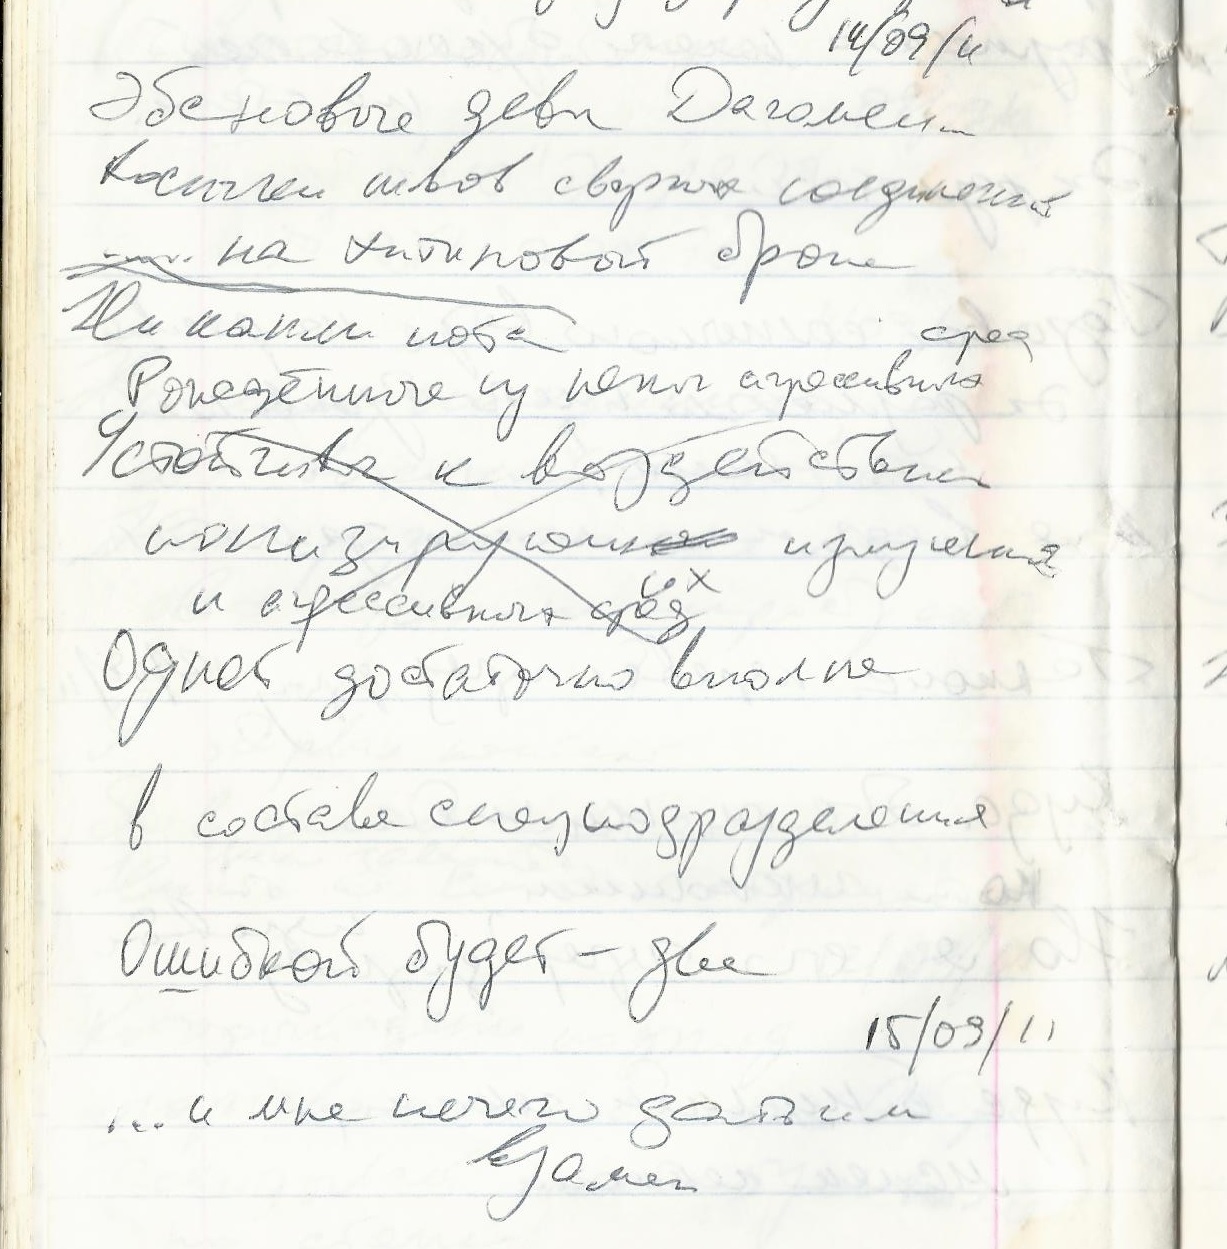 14/09/11
Эбеновые девы Дагомеи...
Косички швов сварных соединений
..... на хитиновой броне
Ни капли пота
сред
Рождённые из пены агрессивных
Устойчива к воздействию
ионизирующих излучения
и агрессивных сред
Одной достаточно вполне
в составе спецподразделения
Ошибкой будет – две
15/09/11
... и мне нечего дать им
взамен